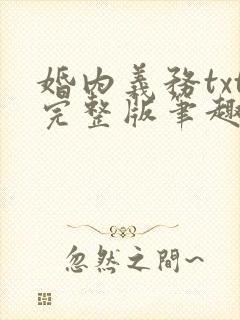 婚內義務txt
完整版筆趣
忽然之間~